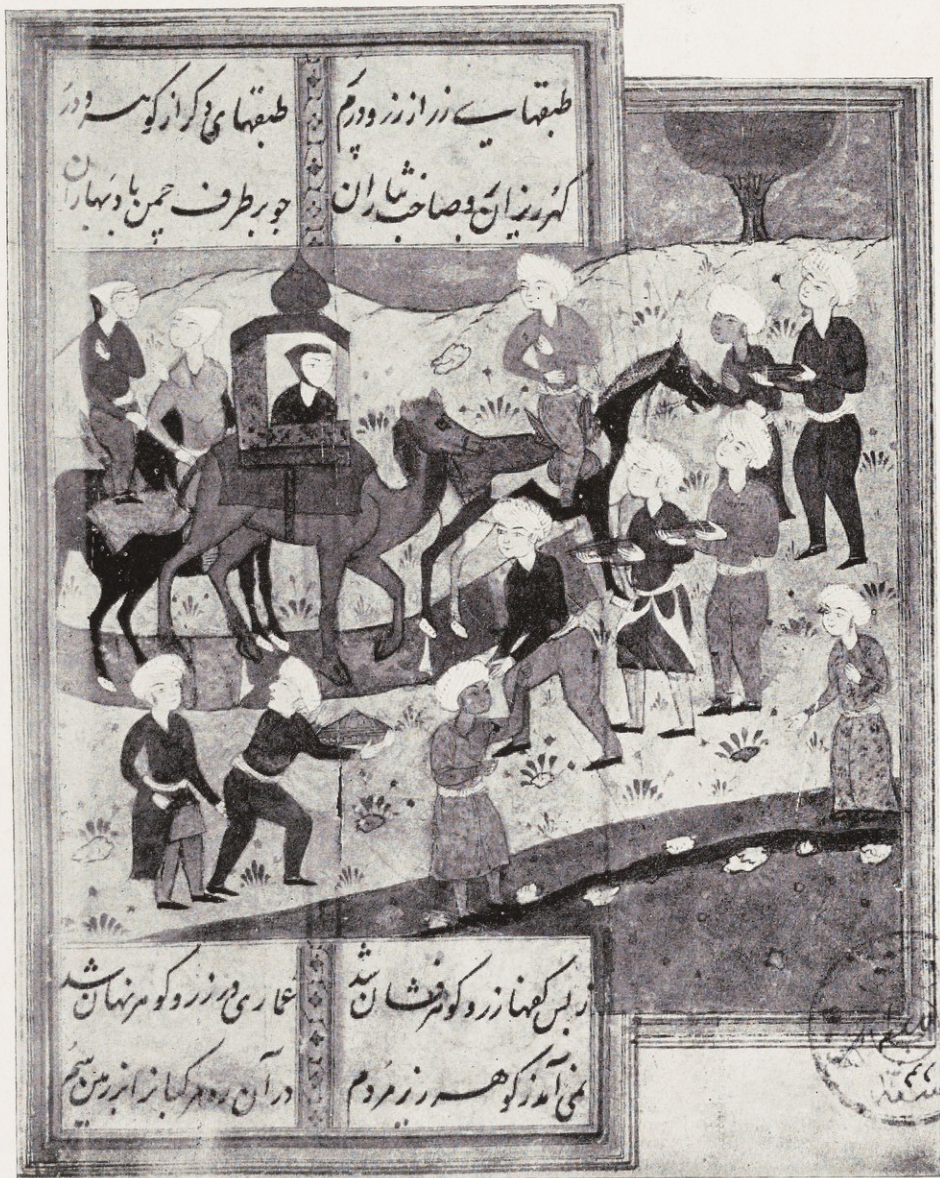 طبقهایے زر از زر و درم پر طبقهای دکر از کوهر و در
کهرریزان بصاحب نثاران چو بر طرف چمن باد بهاران
ز بس کفها زر و کوهر فشان شد عماری در زر و کوهر نهان شد
نمی آمد ز کوهر ریز مردم در آن ره مرکبانرا بر زمین سم